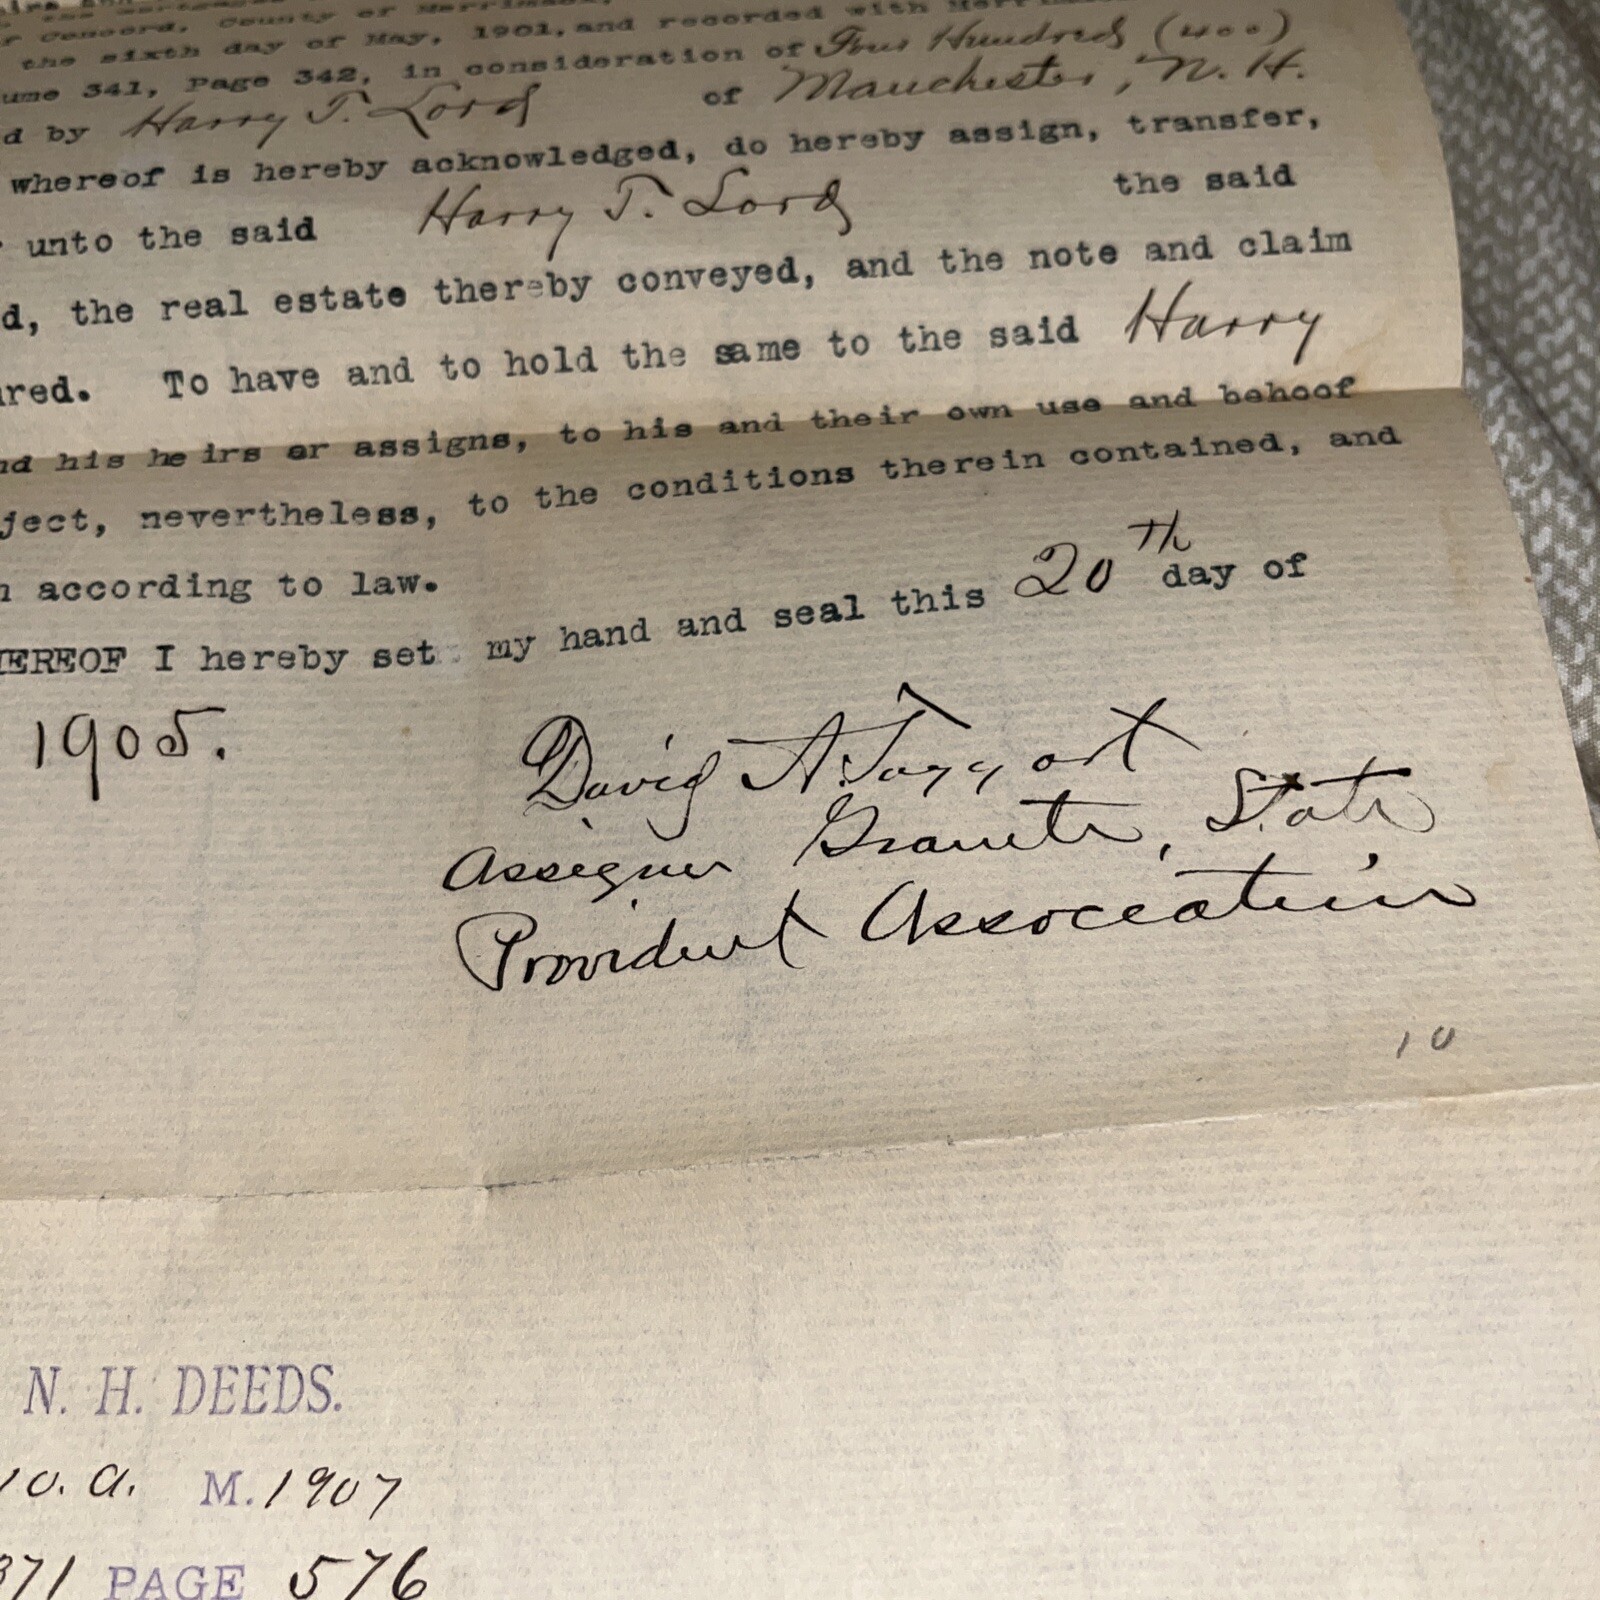 the sixth day of May, 1901, and recorded with
ume 341, Page 342, in consideration of Four Hundred (400)
d by Harry T. Lord of Manchester, N. H.
whereof is hereby acknowledged, do hereby assign, transfer,
unto the said Harry T. Lord the said
d, the real estate thereby conveyed, and the note and claim
ured. To have and to hold the same to the said Harry
nd his heirs or assigns, to his and their own use and behoof
ject, nevertheless, to the conditions therein contained, and
n according to law.
HEREOF I hereby set my hand and seal this 20th day of
1905.
David A. Taggart
Assignee Granite, State
Provident Association
10
N. H. DEEDS.
10. a. M. 1907
371 PAGE 576